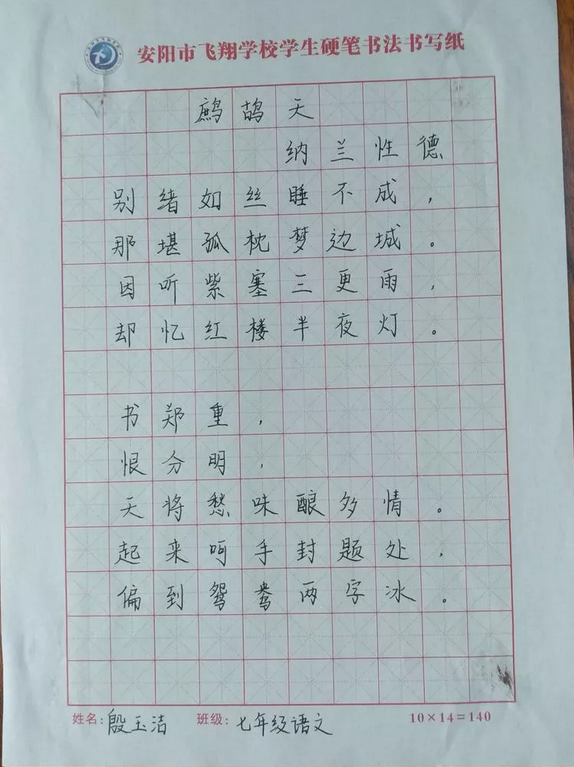 安阳市飞翔学校学生硬笔书法书写纸
鹧鸪天
纳兰性德
别绪如丝睡不成，
那堪孤枕梦边城。
因听紫塞三更雨，
却忆红楼半夜灯。
书郑重，
恨分明，
天将愁味酿多情。
起来呵手封题处，
偏到鸳鸯两字冰。
姓名：殷玉洁 班级：七年级语文 10×14=140